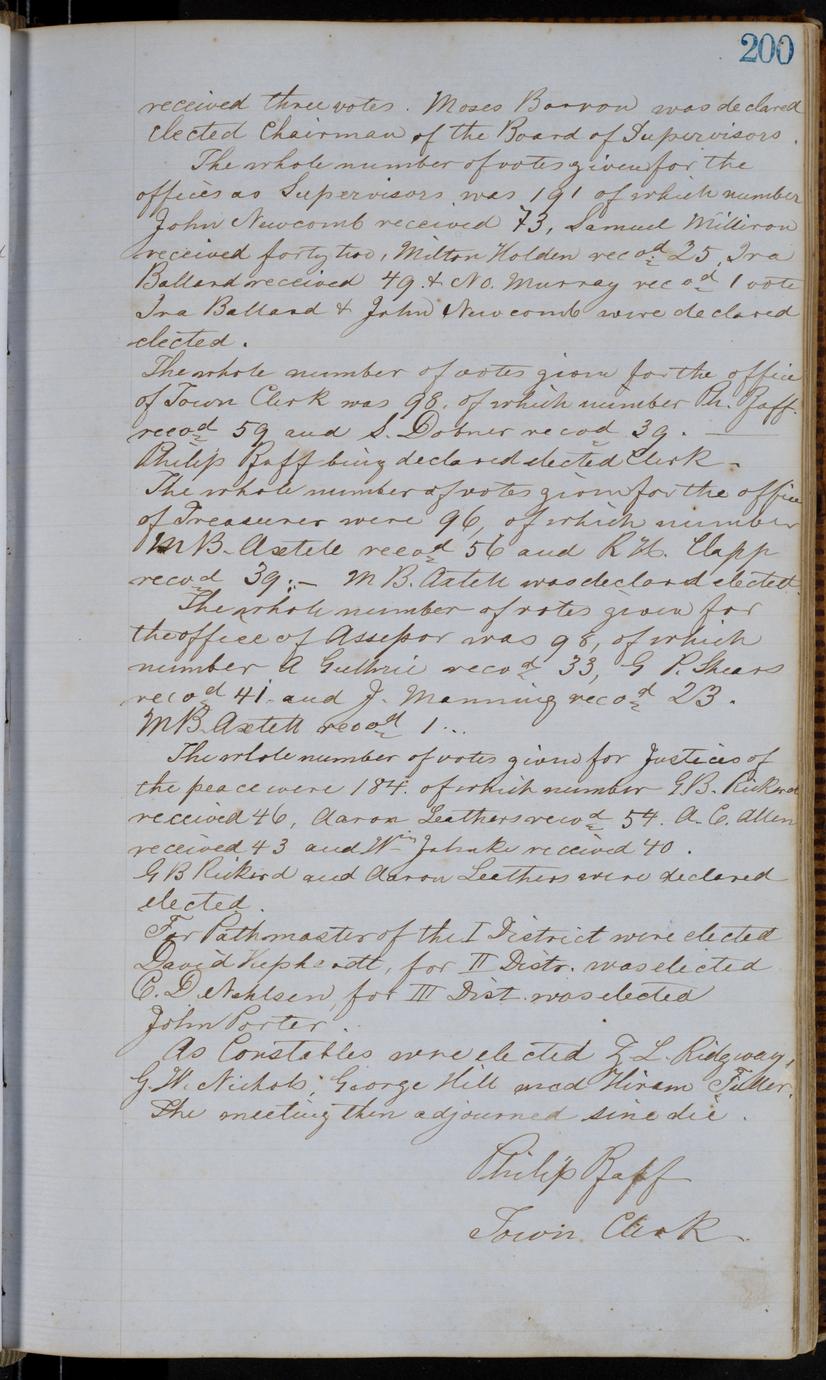 200
received three votes. Moses Barron was declared
elected Chairman of the Board of Supervisors.
The whole number of votes given for the
offices as Supervisors was 191 of which number
John Newcomb received 73, Samuel Milliron
received forty two, Milton Holden recod 25, Ira
Ballard received 49 & No. Murray recod 1 vote
Ira Ballard & John Newcomb were declared
elected.
The whole number of votes given for the office
of Town Clerk was 98, of which number Ph. Raff
recod 59 and S. Dobner recod 39. —
Philip Raff being declared elected Clerk.
The whole number of votes given for the office
of Treasurer were 96, of which number
M B. Axtell recod 56 and R H. Clapp
recod 39;— M B. Axtell was declard elected
The whole number of votes given for
the office of Assessor was 98, of which
number A Guthrie recod 33, G P. Shears
recod 41 and J. Manning recod 23.
M B. Axtell recod 1...
The whole number of votes given for Justices of
the peace were 184. of which number G.B. Rickerd
received 46, Aaron Leathers recod 54. A. C. Allen
received 43 and Wm Jahnke received 40.
G B Rickerd and Aaron Leathers were declared
elected.
For Pathmaster of the I District were elected
David Hephardt, for II Distr. was elected
C. D. Nahlsen, for III Dist. was elected
John Porter.
As Constables were elected L. Ridgway,
G. W. Nichols, George Hill and Hiram Fuller.
The meeting then adjourned sine die.
Philip Raff
Town Clerk